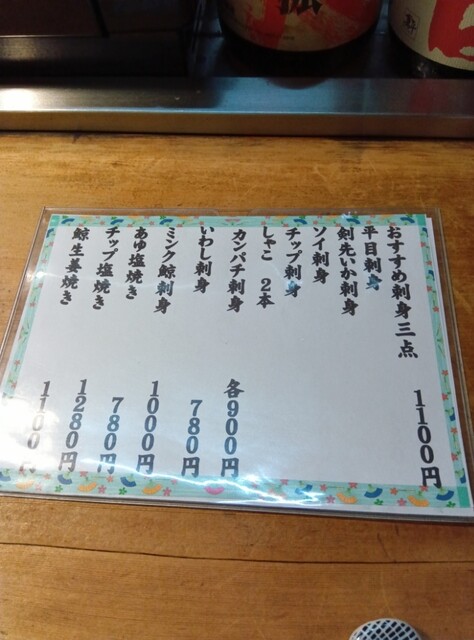 おすすめ刺身三点 1100円
平目刺身
剣先いか刺身
ソイ刺身
チップ刺身
しゃこ 2本
カンパチ刺身 各900円
いわし刺身 780円
ミンク鯨刺身 1000円
あゆ塩焼き 780円
チップ塩焼き 1280円
鯨生姜焼き 1100円